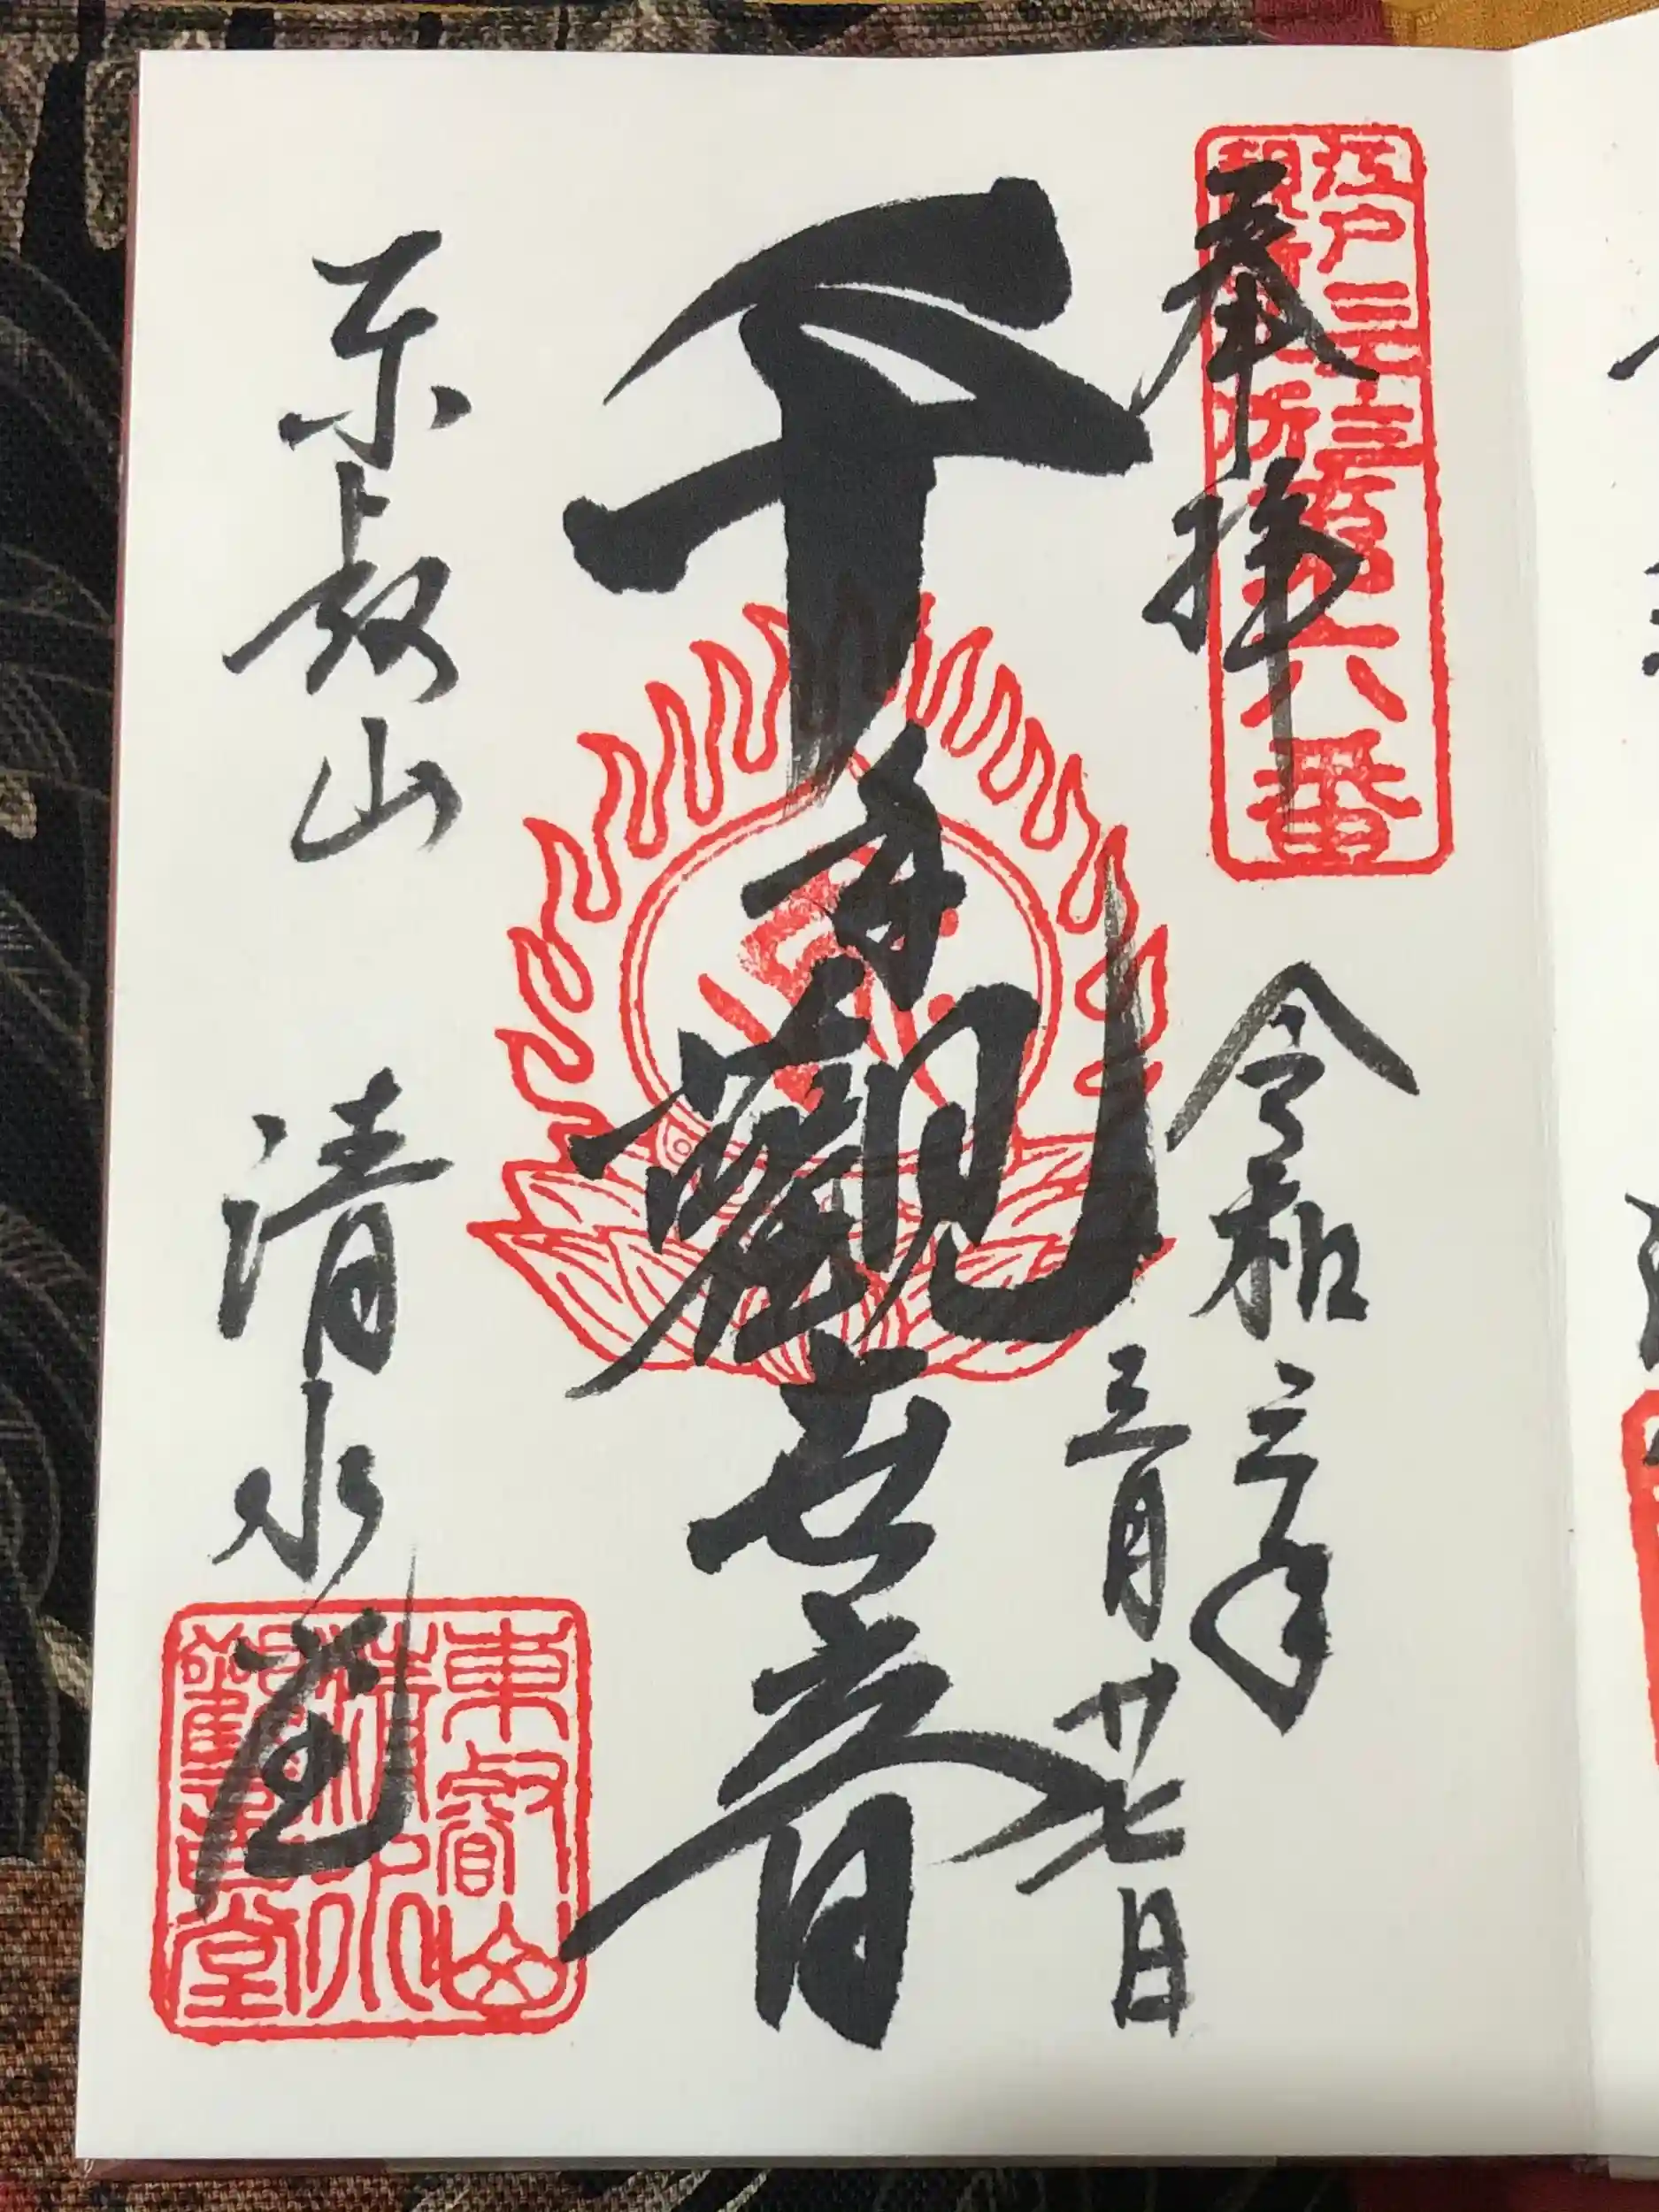 江戸三十三
観音札所
第六番
奉拝
令和三年
三月廿七日
千手觀世音
東叡山 清水堂
東叡山
清水
觀音堂